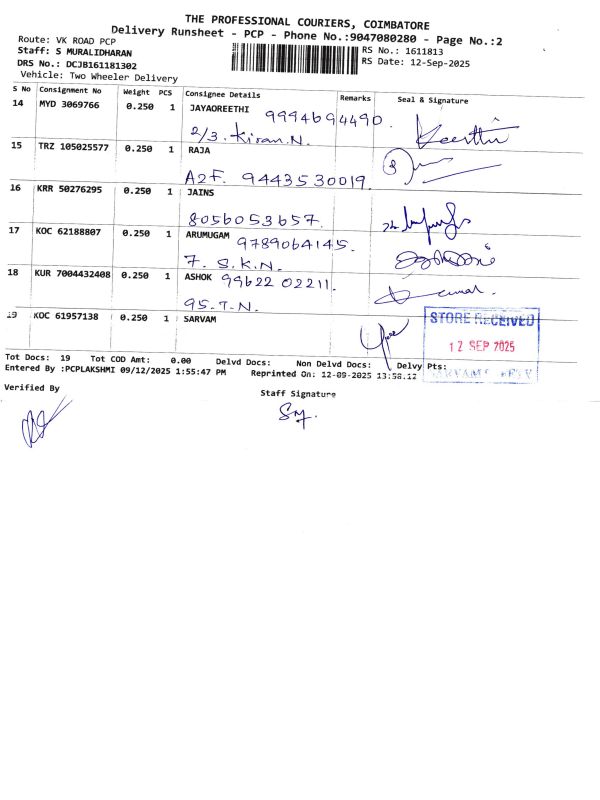 THE PROFESSIONAL COURIERS, COIMBATORE
Delivery Runsheet - PCP - Phone No.:9047080280 - Page No.:2
Route: VK ROAD PCP
Staff: S MURALIDHARAN
DRS No.: DCJB161181302
Vehicle: Two Wheeler Delivery
RS No.: 1611813
RS Date: 12-Sep-2025
S No Consignment No Weight PCS Consignee Details Remarks Seal & Signature
14 MYD 3069766 0.250 1 JAYAOREETHI 9994694490.
2/3. Kiran.N. Keerthi
15 TRZ 105025577 0.250 1 RAJA
A2F. 9443530019.
16 KRR 50276295 0.250 1 JAINS
8056053657.
17 KOC 62188807 0.250 1 ARUMUGAM 9789064145.
7. S.K.N.
18 KUR 7004432408 0.250 1 ASHOK 99622 02211.
95.T.N.
19 KOC 61957138 0.250 1 SARVAM
STORE RECEIVED
12 SEP 2025
Tot Docs: 19 Tot COD Amt: 0.00 Delvd Docs: Non Delvd Docs: Delvy Pts:
Entered By :PCPLAKSHMI 09/12/2025 1:55:47 PM Reprinted On: 12-09-2025 13:58:12
Verified By
Staff Signature